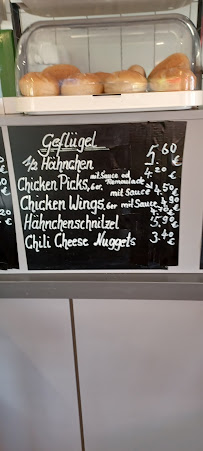 Geflügel
½ Hähnchen 5.60 €
Chicken Picks, 6er, mit Sauce od. Remoulade 4.20 €
mit Sauce 4.50 €
Chicken Wings, 6er mit Sauce 4.70 €
Hähnchenschnitzel 5.90 €
Chili Cheese Nuggets 3.40 €